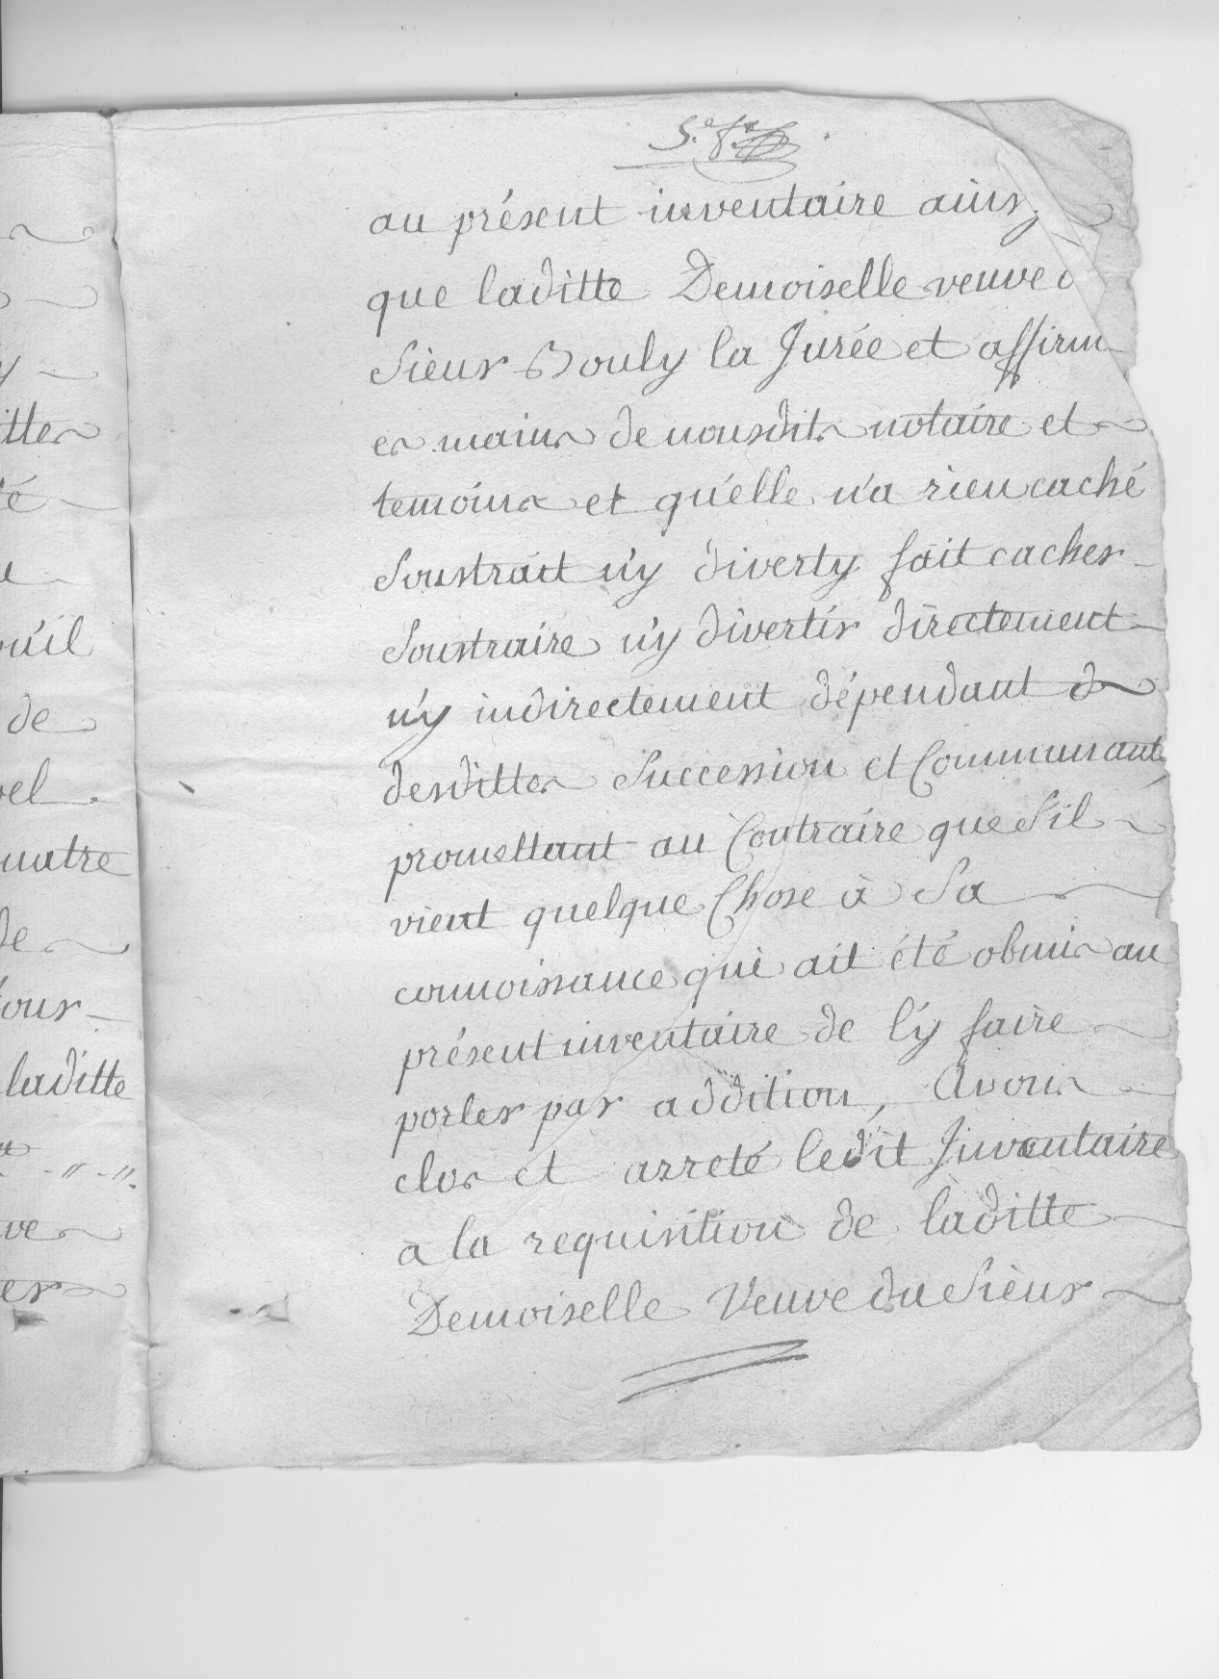 au présent inventaire ainsy
que laditte Demoiselle veuve d
Sieur Bouly la Jurée et affirm
es mains de nousdits notaire et
temoins et qu'elle n'a rien caché
Soustrait n'y diverty fait cacher
Soustraire n'y divertir directement
n'y indirectement dépendant de
desdittes Succession et Communauté
promettant au Contraire que s'il
vient quelque Chose à Sa
connoissance qui ait été obmis au
présent inventaire de l'y faire
porter par addition, Avons
clos et arreté ledit Inventaire
a la requisition de laditte
Demoiselle Veuve du Sieur
itte
é
u'il
de
el
uatre
de
our
laditte
ve
er